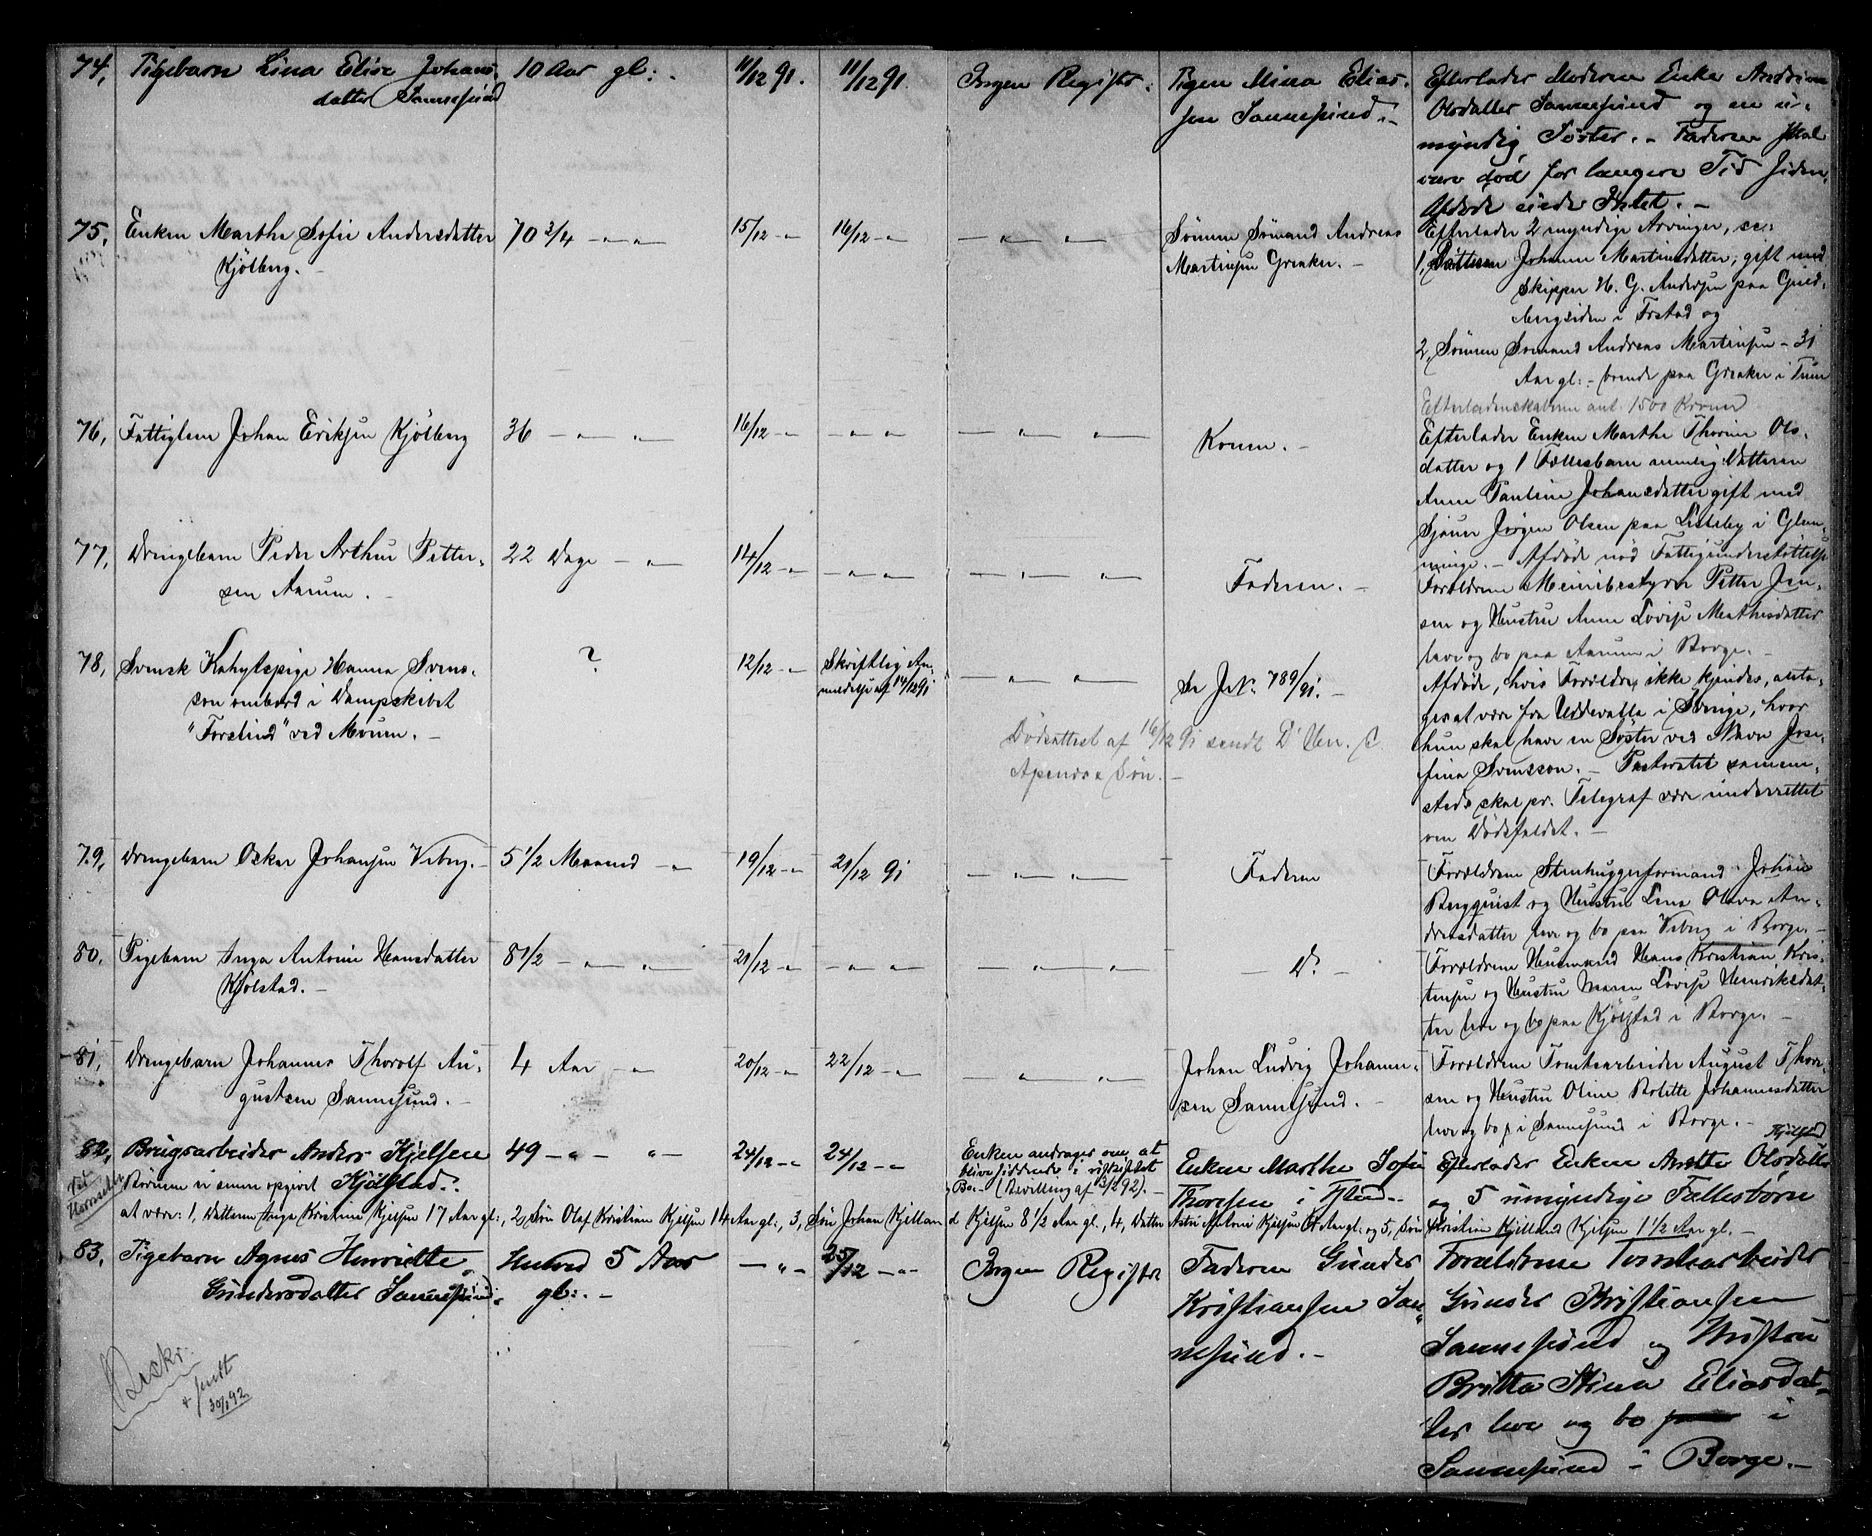 74, Pigebarn Lina Elise Johans-
datter Sannesund
10 Aar gl:.
11/12 91.
11/12 91.
Ingen Register.
Pigen Mina Elias-
sen Sannesund.-
Efterlader Moderen Enke Andrine
Olsdatter Sannesund og en u-
myndig Søster.- Faderen skal
være død for længere Tid siden.
Afdøde under Skilet.-
75, Enken Marthe Sofie Andersdatter
Kjølberg.-
70 3/4 - " - "
15/12 - "
16/12 - "
- " - " -
Sønnen Sømand Andreas
Martinsen Greaker.-
Efterlader 2 myndige Arvinger, sc.:
1, Datteren Johanne Martinsdatter, gift med
Skipper H. G. Andersen paa Guld-
bergsiden i Frstad og
2, Sønnen Sømand Andreas Martinsen - 31
Aar gl:.- boende paa Greaker i Tune
Efterladenskaberne ant. 1500 Kroner
76, Fattiglem Johan Eriksen Kjølberg
36 - " - "
16/12 - "
- " - "
- " - " -
Konen.-
Efterlader Enken Marthe Thorine Ols-
datter og 1 Fællesbarn nemlig Datteren
Anne Pauline Johansdatter gift med
Sjauer Jørgen Olsen paa Lisleby i Glem-
minge.- Afdøde nød Fattigunderstøttelse
77, Drengebarn Peder Arthur Petter-
sen Aarum.-
22 Dage - "
14/12 - "
- " - "
- " - " -
Faderen.-
Forældrene Meieribestyrer Petter Jen-
sen og Hustru Anne Lovise Mathisdatter
leve og bo paa Aarum i Borge.-
78, Svensk Kahytspige Hanna Svens-
son ombord i Dampskibet
"Forslund" ved Moum.-
?
12/12 - "
Skriftlig An-
meldelse af 14/12 91
- " - " -
Se J.N. 789/91.-
Dødsattest af 16/12 91 sendt D' Hrr.
Apenes & Søn.-
Afdøde, hvis Forældre ikke kjendes, anta-
ges at være fra Uddevalla i Sverige, hvor
hun skal have en Søster ved Navn Jose-
fina Svensson.- Pastoratet sammen-
steds skal pr. Telegraf være underrettet
om Dødsfaldet.-
79, Drengebarn Oskar Johansen Viberg.-
5 1/2 Maaned - "
19/12 - "
21/12 91
- " - " -
Faderen
Forældrene Stenhuggerformand Johan
Bergquist og Hustru Lina Olava An-
dreasdatter leve og bo paa Viberg i Borge.-
80, Pigebarn Inga Antonie Hansdatter
Kjølstad.-
8 1/2 - " - "
21/12 - "
- " - "
- " - " -
- D: -
Forældrene Husmand Hans Kristian Kris-
tensen og Hustru Maren Lovise Henriksdat-
ter leve og bo paa Kjølstad i Borge.-
81, Drengebarn Johannes Thorolf Au-
gustsen Sannesund.-
4 Aar - "
20/12 - "
22/12 - "
- " - " -
Johan Ludvig Johann-
sen Sannesund.-
Forældrene Tomtearbeider August Thor-
sen og Hustru Oline Bolette Johannesdatter
leve og bo i Sannesund i Borge.-
82, Brugsarbeider Anders Kjelsen
Kjølstad.
49 - " - "
24/12 - "
24/12 - "
Enken andrager om at
blive siddende i uskiftet
Bo.- (Bevilling af 3/2 92).-
Enken Marthe Sofie
Thoresen i
Efterlader Enken Anette Olsdatter
Kjølstad
og 5 umyndige Fællesbørn
Børnene er senere opgivet
at være: 1, Datteren Inga Kristine Kjelsen 17 Aar gl:, 2, Søn Olaf Kristian Kjelsen 14 Aar gl:, 3, Søn Johan Kjelland Kjelsen 8 1/2 Aar gl., 4, Datter Kjelsen Aar gl: og 5, Søn Kristian Kjelland Kjelsen 1 1/2 Aar gl.-
83, Pigebarn Agnes Henriette
Gundersdatter Sannesund.
Henved 5 Aar
gl:.-
- " -
25/12 - "
Ingen Register
Faderen Gunder
Kristiansen San-
nesund.-
Forældrene Tomtearbeider
Gunder Kristiansen
Sannesund og Hustru
Britta Stina Eliasdat-
ter leve og bo i
Sannesund i Borge.-
Udskr.
+ sendt
30/1 92